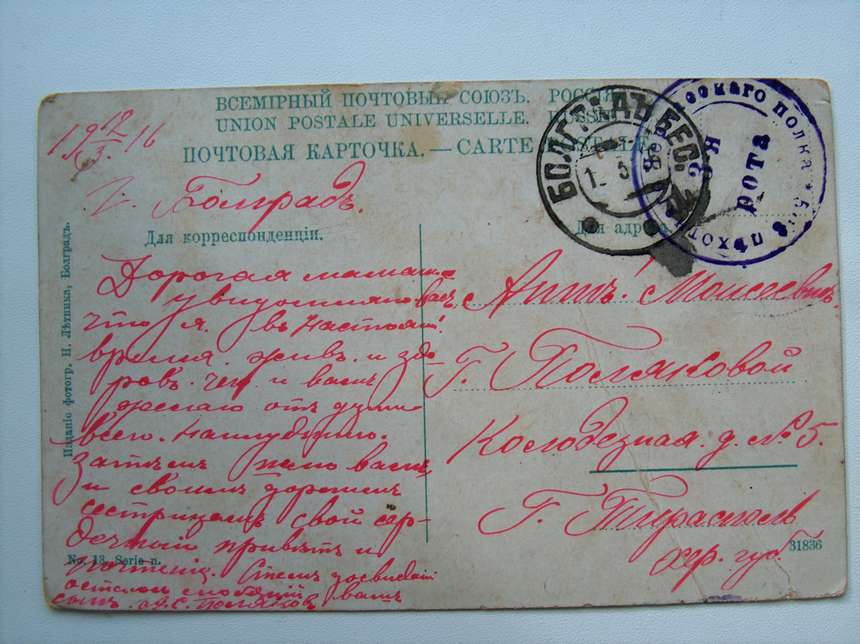 ВСЕМІРНЫЙ ПОЧТОВЫЙ СОЮЗЪ. РОССІЯ
UNION POSTALE UNIVERSELLE.
ПОЧТОВАЯ КАРТОЧКА. — CARTE
19 12/3 16
Г. Болградъ.
Для корреспонденціи.
Для адреса
БОЛГРАДЪ БЕС.
скаго полка
пѣхот
3-я
рота
Дорогая мамаша
увидомляю васъ
что я. въ настоящ.
время. живъ. и здо-
ровъ. чего и вамъ
желаю отъ души
всего. Наилучшаго.
Затѣмъ шлю вамъ
и своимъ дорогимъ
сестрицамъ свой сер-
дечный привѣтъ и
почтеніе. Съ тѣмъ досвиданія
остаюсь вашъ
сынъ. А. С. Поляковъ
Моисеевнѣ
Г. Поляковой
Колодезная. д. № 5.
Г. Тирасполь
хер. губ
Изданіе фотогр. Н. Лѣтника, Болградъ.
No. 13. Serie n.
31836